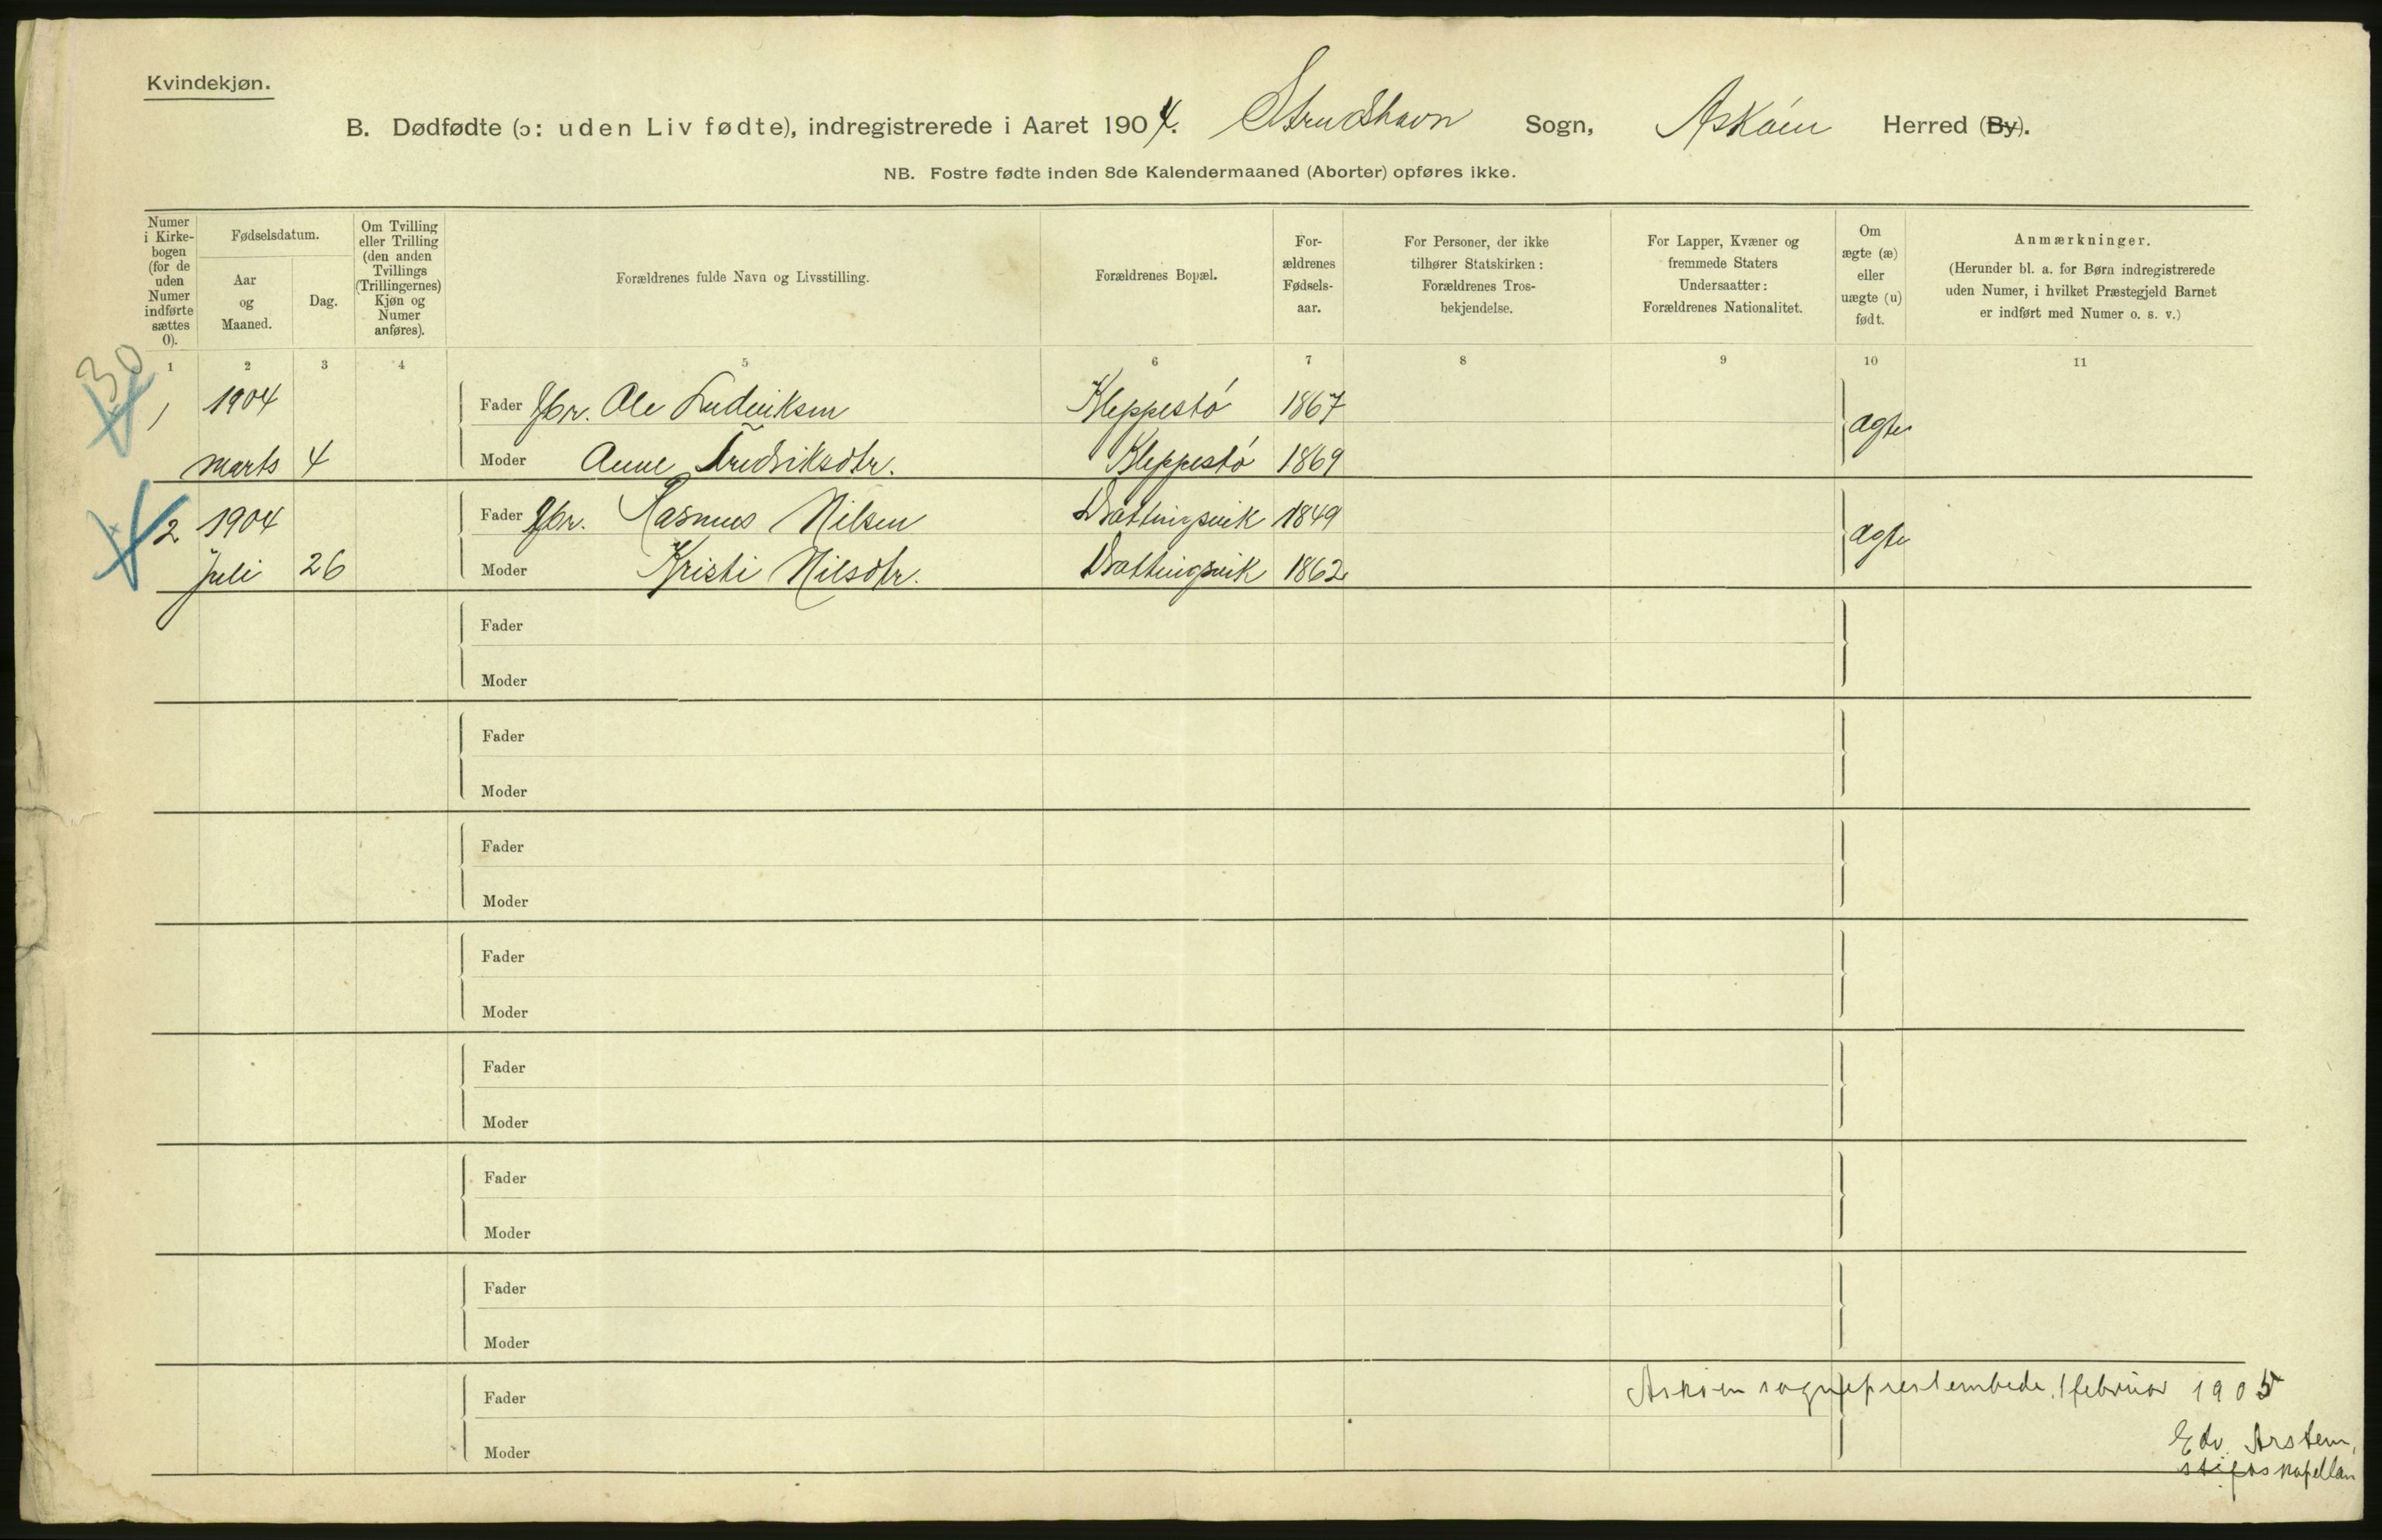 Kvindekjøn.
B. Dødfødte (ɔ: uden Liv fødte), indregistrerede i Aaret 1904. Strudshavn Sogn, Askøen Herred (By).
NB. Fostre fødte inden 8de Kalendermaaned (Aborter) opføres ikke.
Numer
i Kirke-
bogen
(for de
uden
Numer
indførte
sættes
0).
Fødselsdatum.
Aar
og
Maaned.
Dag.
Om Tvilling
eller Trilling
(den anden
Tvillings
(Trillingernes)
Kjøn og
Numer
anføres).
Forældrenes fulde Navn og Livsstilling.
Forældrenes Bopæl.
For-
ældrenes
Fødsels-
aar.
For Personer, der ikke
tilhører Statskirken:
Forældrenes Tros-
bekjendelse.
For Lapper, Kvæner og
fremmede Staters
Undersaatter:
Forældrenes Nationalitet.
Om
ægte (æ)
eller
uægte (u)
født.
Anmærkninger.
(Herunder bl. a. for Børn indregistrerede
uden Numer, i hvilket Præstegjeld Barnet
er indført med Numer o. s. v.)
1 2 3 4 5 6 7 8 9 10 11
30
1 1904 Fader Gbr. Ole Ludviksen Kleppestø 1867 ægte
marts 4 Moder Anne Fredriksdtr. Kleppestø 1869
2 1904 Fader Gbr. Rasmus Nilsen Drottningsvik 1849 ægte
Juli 26 Moder Kristi Nilsdtr. Drottingsvik 1862
Fader
Moder
Fader
Moder
Fader
Moder
Fader
Moder
Fader
Moder
Fader
Moder
Fader
Moder
Fader Askøen sogneprestembede, 1 februar 1905
Moder Edv. Arstein,
stiftskapellan